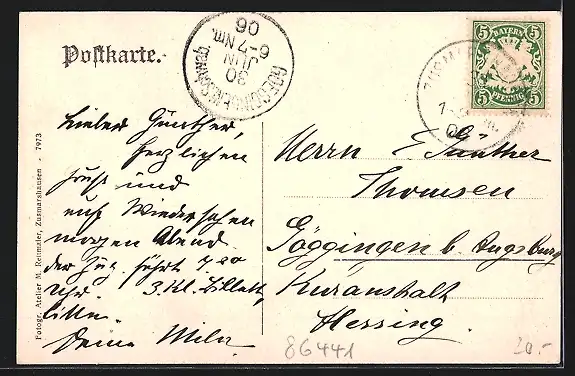 Postkarte.
GÖGGINGEN
6-7 Nm.
30
JUN
06
ZUSMARSHAUSEN
5 5
BAYERN
PFENNIG
5 5
Lieber Günther,
herzlichen
Gruß und
auf Wiedersehen
morgen Abend
der Zug fährt 7.20
Uhr. 3. Kl. Billett,
bitte.
Deine Mela
Herrn Günther
Thomsen
Göggingen b. Augsburg
Kuranstalt
Hessing.
Fotogr. Atelier M. Reitmaier, Zusmarshausen - 7973
86441
30.-